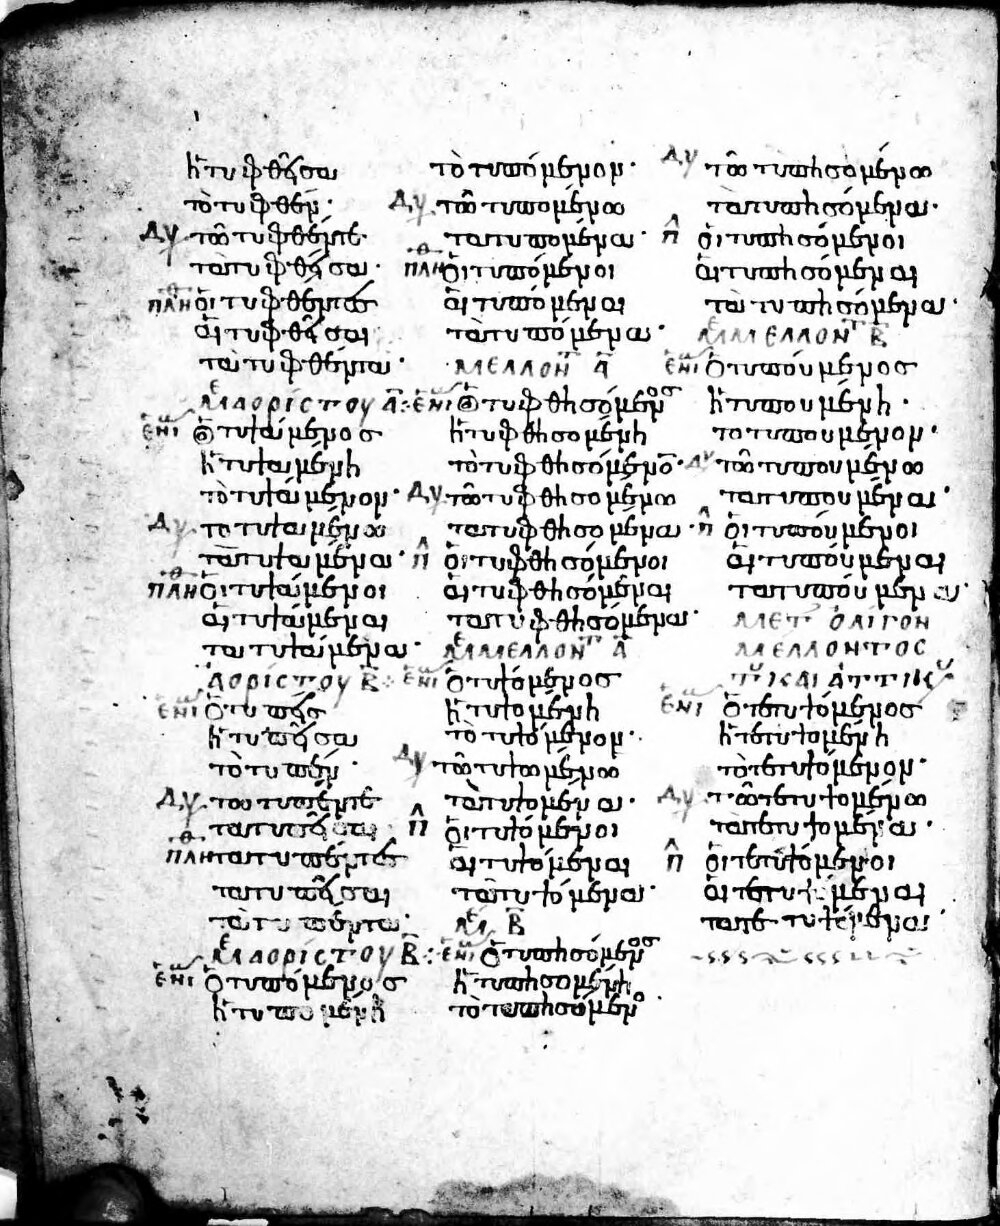 ἡ τυφθεῖσα
τὸ τυφθέν·
Δυ τὼ τυφθέντε·
τὰ τυφθείσα·
πλη θ οἱ τυφθέντες
αἱ τυφθεῖσαι
τὰ τυφθέντα·
με ἀορίστου α:
ἑνι ὁ τυψάμενος
ἡ τυψαμένη
τὸ τυψάμενον·
Δυ τὸ τυψαμένω
τὰ τυψαμένα·
πλη θ οἱ τυψάμενοι
αἱ τυψάμεναι
τὰ τυψάμενα·
ἀορίστου β:
ἑνι ὁ τυπεὶς
ἡ τυπεῖσα
τὸ τυπέν·
Δυ τὼ τυπέντε
τὰ τυπείσα
πλη θ τὰ τυπέντες
τὰ τυπεῖσαι
τὰ τυπέντα·
με ἀορίστου β:
ἑνι ὁ τυπόμενος
ἡ τυπομένη
τὸ τυπόμενον·
Δυ τὼ τυπομένω
τὰ τυπομένα·
πλη θ οἱ τυπόμενοι
αἱ τυπόμεναι
τὰ τυπόμενα·
μέλλοντ α
ἑνι ὁ τυφθησόμενος
ἡ τυφθησομένη
τὸ τυφθησόμενον·
Δυ τὼ τυφθησομένω
τὰ τυφθησομένα·
π οἱ τυφθησόμενοι
αἱ τυφθησόμεναι
τὰ τυφθησόμενα·
με μέλλοντ α
ἑνι ὁ τυψόμενος
ἡ τυψομένη
τὸ τυψόμενον·
Δυ τὼ τυψομένω
τὰ τυψομένα·
π οἱ τυψόμενοι
αἱ τυψόμεναι
τὰ τυψόμενα·
με β
ἑνι ὁ τυπησόμενος
ἡ τυπησομένη
τὸ τυπησόμενον
Δυ τὼ τυπησομένω
τὰ τυπησομένα·
π οἱ τυπησόμενοι
αἱ τυπησόμεναι
τὰ τυπησόμενα·
με μέλλοντ β
ἑνι ὁ τυπούμενος
ἡ τυπουμένη·
τὸ τυπούμενον·
Δυ τὼ τυπουμένω
τὰ τυπουμένα·
π οἱ τυπούμενοι
αἱ τυπούμεναι
τὰ τυπούμενα·
μετ ὀλίγον
μέλλοντος
καὶ ἀττικ
ἑνι ὁ τετυψόμενος
ἡ τετυψομένη
τὸ τετυψόμενον·
Δυ τὼ τετυψομένω
τὰ τετυψομένα·
π οἱ τετυψόμενοι
αἱ τετυψόμεναι
τὰ τετυψόμενα·